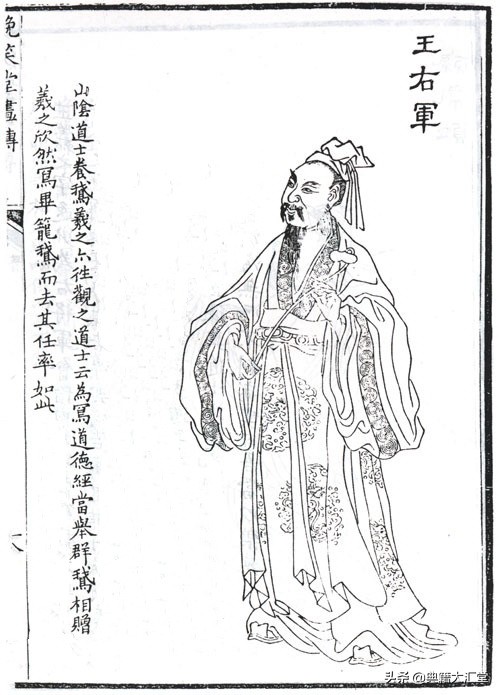 王右軍
山陰道士養鵝羲之亦往觀之道士云為冩道德經當舉群鵝相贈
羲之欣然冩畢籠鵝而去其任率如此
晚笑堂畫傳
八
头条@典籍大汇堂